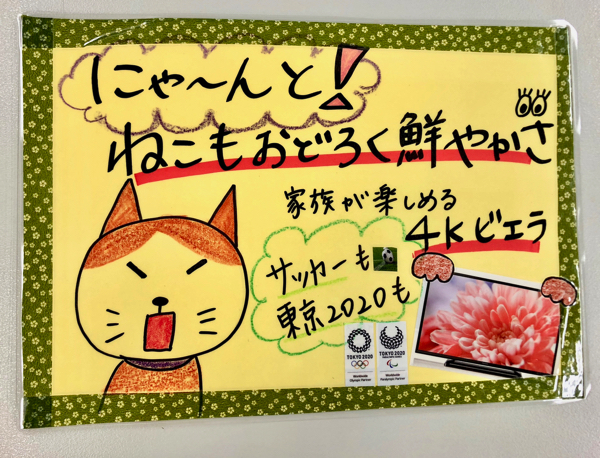 にゃ〜んと!
ねこもおどろく鮮やかさ
家族が楽しめる
4Kビエラ
サッカーも
東京2020も
TOKYO 2020
Worldwide Olympic Partner
TOKYO 2020
PARALYMPIC GAMES
Worldwide Paralympic Partner